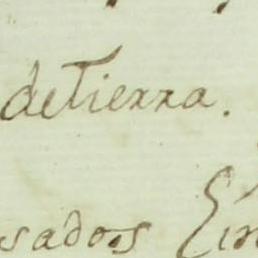 de Tierra.
sados